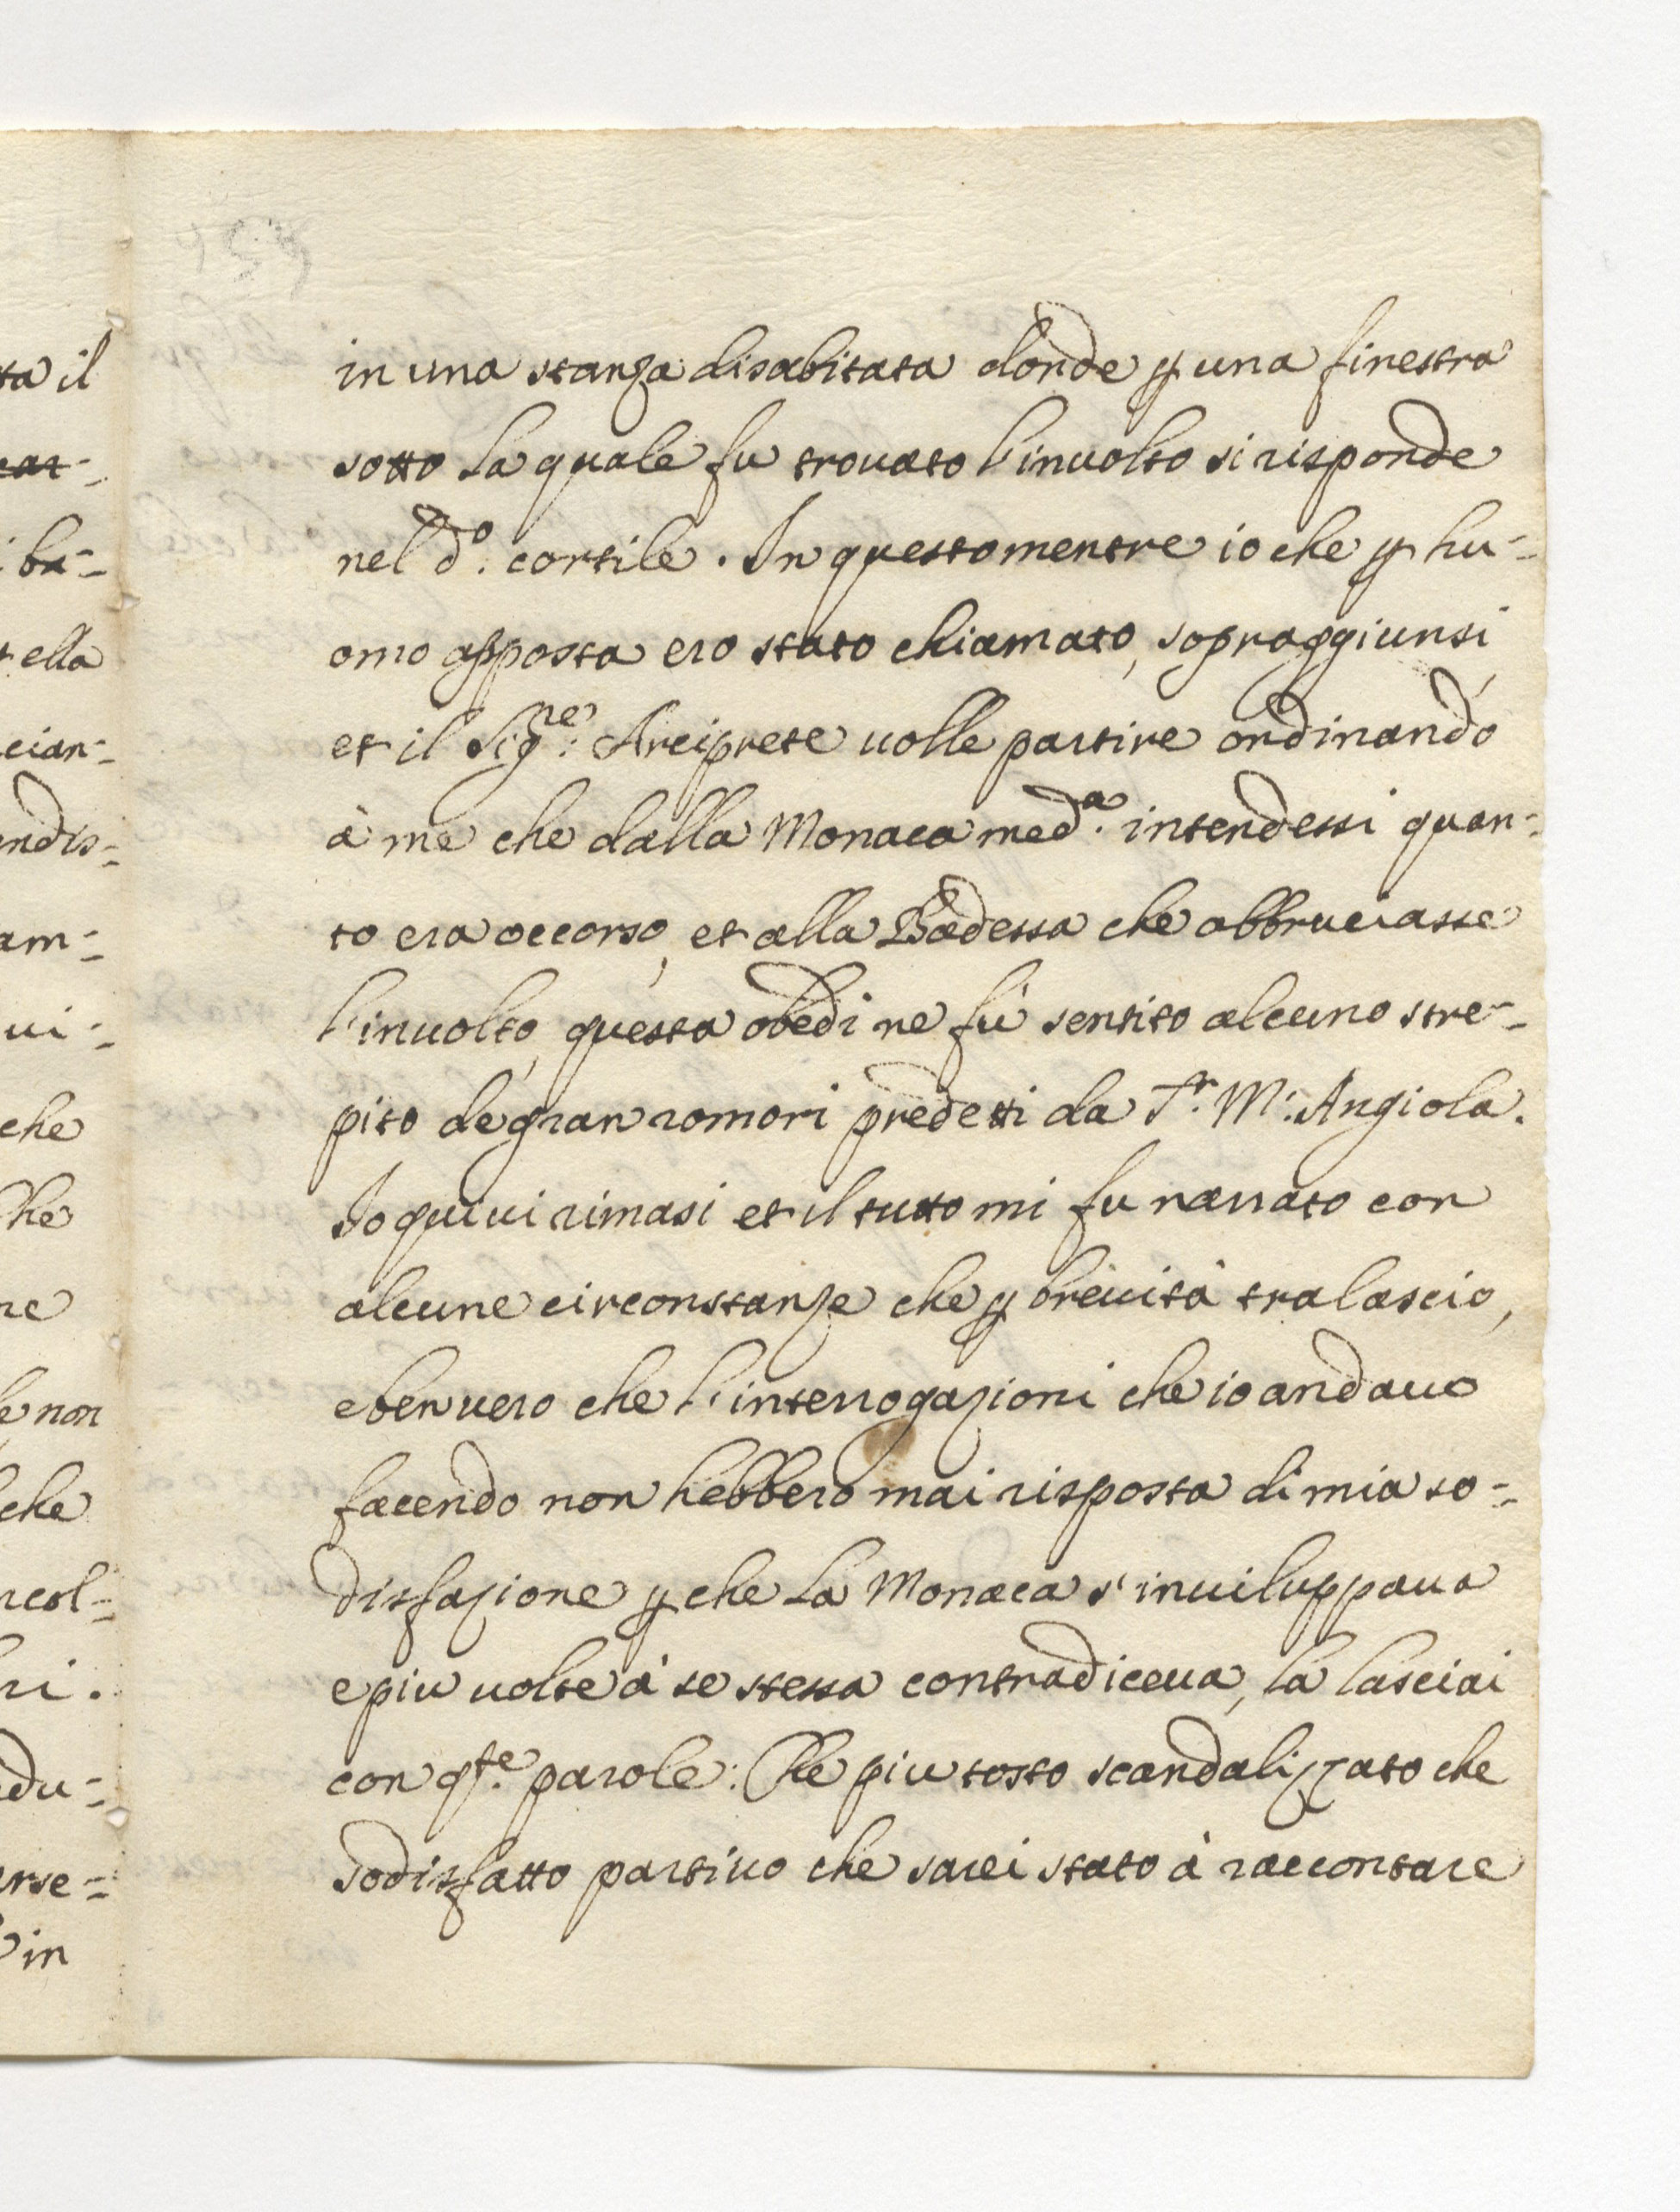 in una stanza disabitata donde ꝑ una finestra
sotto la quale fu trouato l'inuolto si risponde
nel d.º cortile. In questo mentre io che ꝑ hu=
omo apposta ero stato chiamato, sopraggiunsi,
et il Sig.re Arciprete uolle partire ordinando
à me che dalla Monaca med.a intendessi quan=
to era occorso, et alla Badessa che abbruciasse
l'inuolto, questa obedi ne fù sentito alcuno stre=
pito de gran romori predetti da S.r M.a Angiola.
Io quiui rimasi et il tutto mi fu narrato con
alcune circonstanze che ꝑ breuità tralascio,
e ben uero che l'interrogazioni che io andauo
facendo non hebbero mai risposta di mia so=
disfazione ꝑche la Monaca s'inuiluppaua
e piu uolte à se stessa contradiceua, la lasciai
con q.te parole: Che piu tosto scandalizzato che
sodisfatto partiuo che sarei stato à raccontare
ta il
car=
i ba=
t ella
cian=
endis=
am=
ui=
che
che
ne
le non
che
ncol=
ri.
edu=
erse=
in